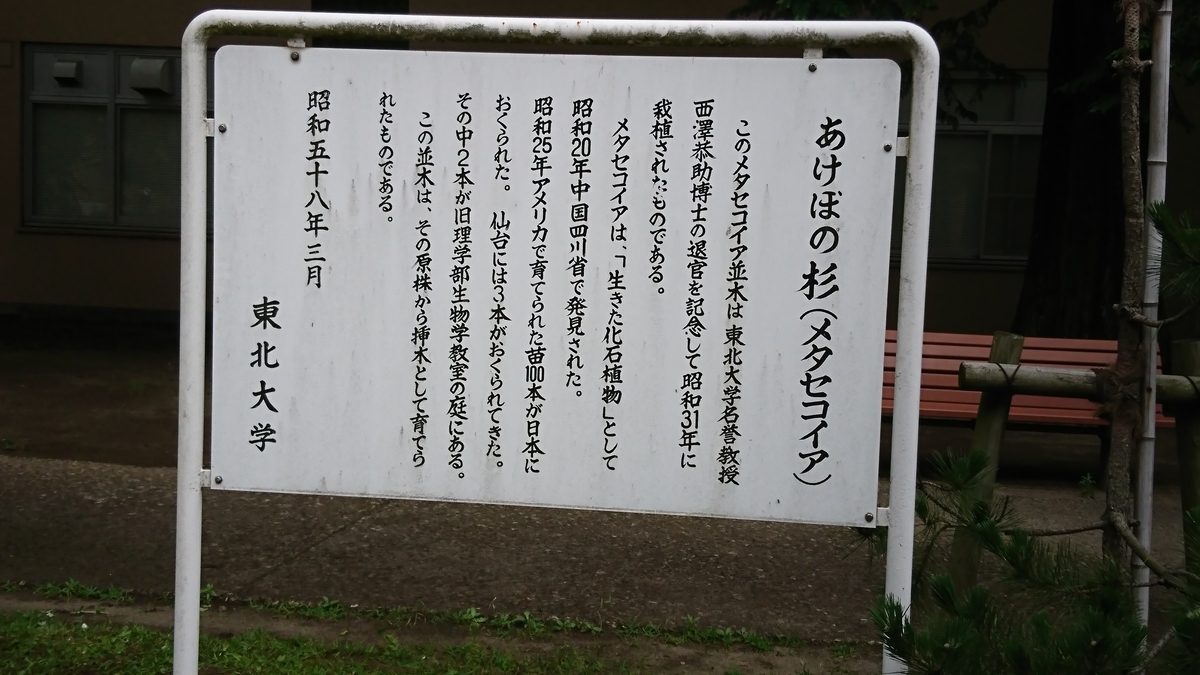 あけぼの杉(メタセコイア)
このメタセコイア並木は 東北大学名誉教授
西澤恭助博士の退官を記念して昭和31年に
栽植されたものである。
メタセコイアは、「生きた化石植物」として
昭和20年中国四川省で発見された。
昭和25年アメリカで育てられた苗100本が日本に
おくられた。 仙台には3本がおくられてきた。
その中2本が旧理学部生物学教室の庭にある。
この並木は、その原株から挿木として育てら
れたものである。
昭和五十八年三月
東北大学